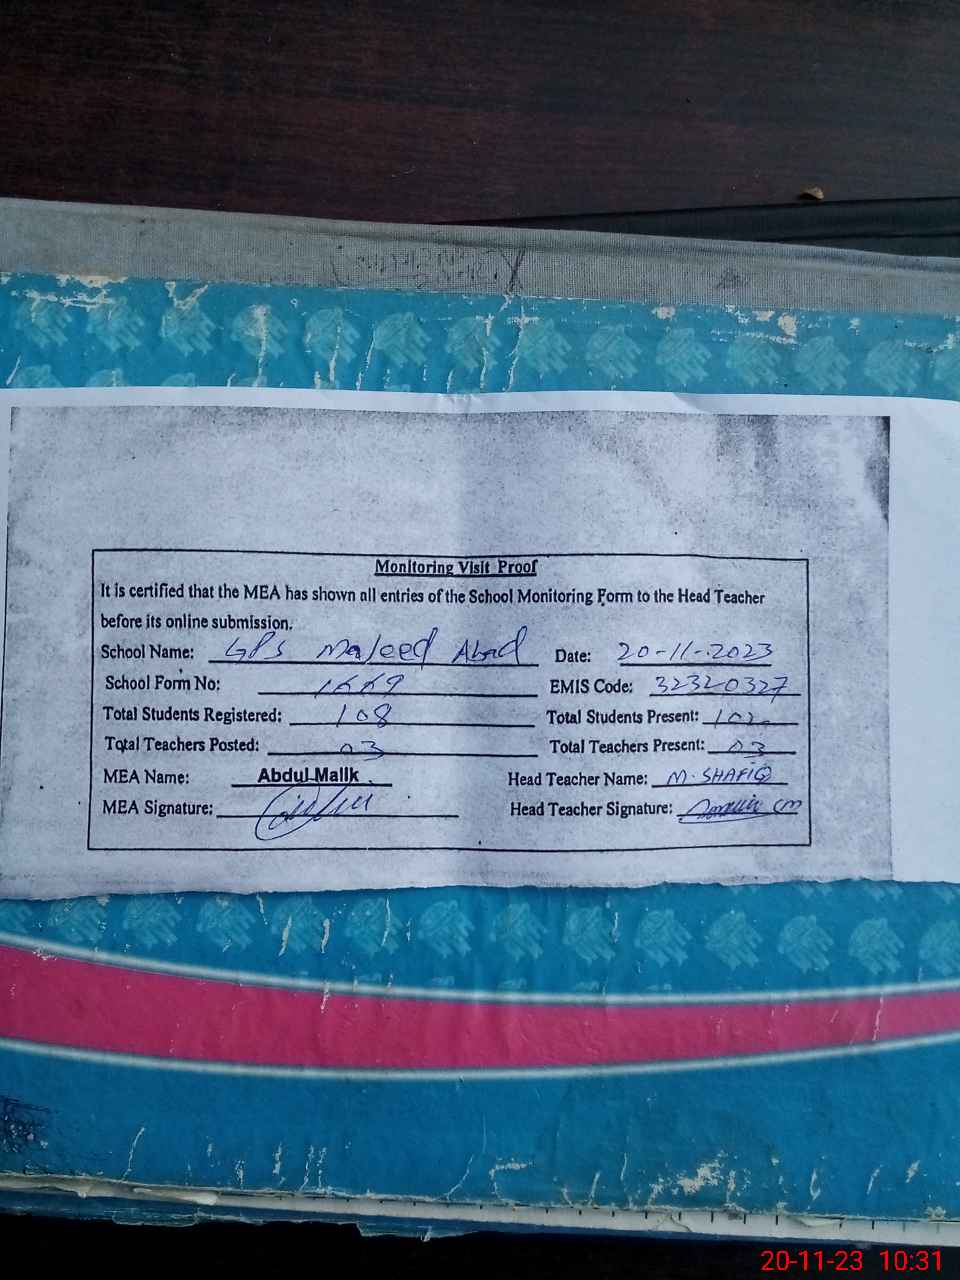 Monitoring Visit Proof
It is certified that the MEA has shown all entries of the School Monitoring Form to the Head Teacher
before its online submission.
School Name: GPS Majeed Abad Date: 20-11-2023
School Form No: EMIS Code: 32320327
Total Students Registered: 108 Total Students Present: 102
Total Teachers Posted: 03 Total Teachers Present: 03
MEA Name: Abdul Malik Head Teacher Name: M. SHAFIQ
MEA Signature: Head Teacher Signature:
20-11-23 10:31